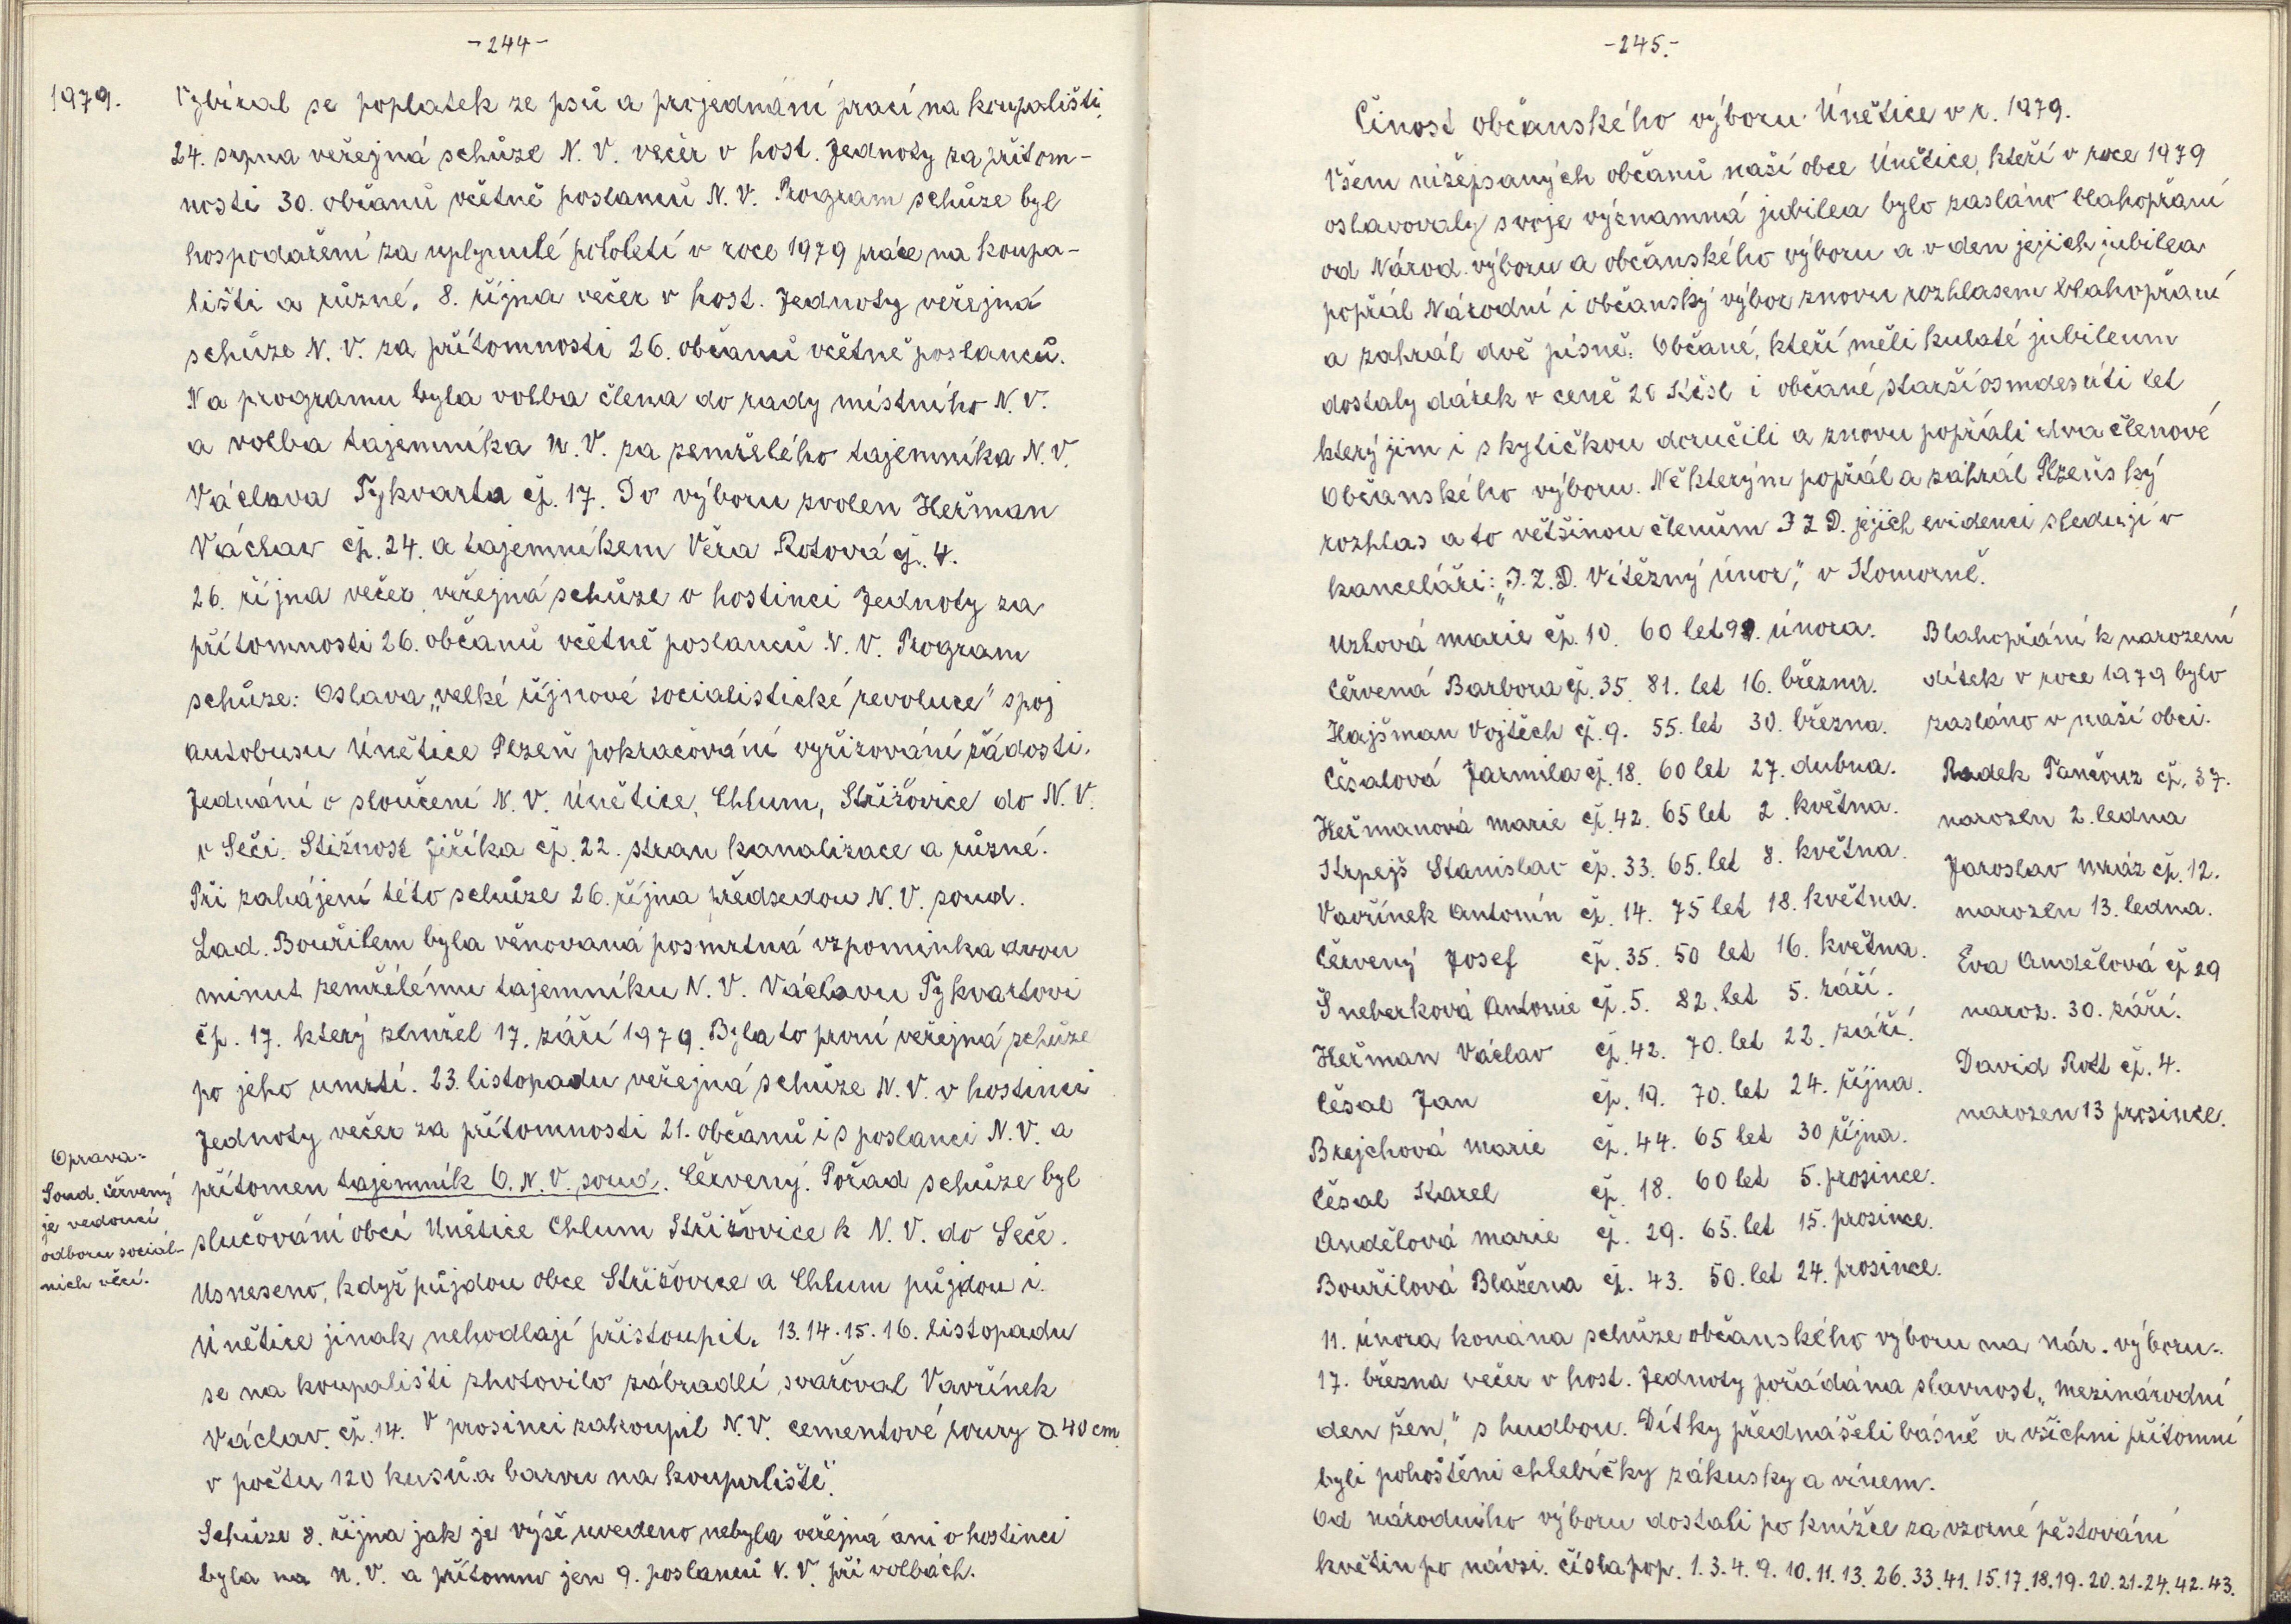 -244-
1979.
Vybíral se poplatek ze psů a projednání prací na koupališti.
24. srpna veřejná schůze N. V. večer v host. Jednoty za přítom-
nosti 30. občanů včetně poslanců N. V. Program schůze byl
hospodaření za uplynulé pololetí v roce 1979 práce na koupa-
lišti a různé. 8. října večer v host. Jednoty veřejná
schůze N. V. za přítomnosti 26. občanů včetně poslanců.
Na programu byla volba člena do rady místního N. V.
a volba tajemníka N. V. za zemřelého tajemníka N. V.
Václava Tykvarta čp. 17. Do výboru zvolen Heřman
Václav čp. 24. a tajemníkem Věra Rotová čp. 4.
26. října večer veřejná schůze v hostinci Jednoty za
přítomnosti 26. občanů včetně poslanců N. V. Program
schůze: Oslava „velké říjnové socialistické revoluce" spoj
autobusu Únětice Plzeň pokračování vyřizování žádosti.
Jednání o sloučení N. V. Únětice, Chlum, Střížovice do N. V.
v Seči. Stížnost Jiříka čp. 22. stran kanalizace a různé.
Při zahájení této schůze 26. října předsedou N. V. soud.
Lad. Bouřilem byla věnovaná posmrtná vzpomínka dvou
minut zemřélému tajemníku N. V. Václavu Tykvartovi
čp. 17. který zemřel 17. září 1979. Byla to první veřejná schůze
po jeho umrtí. 23. listopadu veřejná schůze N. V. v hostinci
Jednoty večer za přítomnosti 21. občanů i s poslanci N. V. a
přítomen tajemník O. N. V. soud. Červený. Pořad schůze byl
slučování obcí Unětice Chlum Střížovice k N. V. do Seče.
Usneseno, když půjdou obce Střížovice a Chlum půjdou i
Unětice jinak nehodlají přistoupit. 13. 14. 15. 16. listopadu
se na koupališti zhotovilo zábradlí, svařoval Vavřínek
Václav. čp. 14. V prosinci zakoupil N. V. cementové roury a 40 cm
v počtu 120 kusů a barvu na koupaliště.
Schůze 8. října jak je výše uvedeno nebyla veřejná ani v hostinci
byla na N. V. a přítomno jen 9. poslanců N. V. při volbách.
Oprava=
Soud. Červený
je vedoucí
odboru sociál-
ních věcí.
-245.-
Činost občanského výboru Únětice v r. 1979.
Všem nížepsaných občanů naší obce Únětice, kteří v roce 1979
oslavovaly svoje významná jubilea bylo zasláno blahopřání
od Národ. výboru a občanského výboru a v den jejich jubilea
popřál Národní i občanský výbor znovu rozhlasem blahopřání
a zahrál dvě písně. Občané, kteří měli kulaté jubileum
dostaly dárek v ceně 20 Kčsl i občané starší osmdesáti let
který jim i s kytičkou doručili a znovu popřáli dva členové
Občanského výboru. Některým popřál a zahrál Plzeňský
rozhlas a to většinou členům J Z D. jejich evidenci sledují v
kanceláři: „J. Z. D. Vítězný únor," v Komorně.
Uzlová Marie čp. 10. 60 let 9. února.
Červená Barbora čp. 35. 81. let 16. března.
Hajšman Vojtěch čp. 9. 55. let 30. března.
Česalová Jarmila čp. 18. 60 let 27. dubna.
Heřmanová Marie čp. 42. 65 let 2. května.
Krpejš Stanislav čp. 33. 65. let 8. května.
Vavřínek Antonín čp. 14. 75 let 18. května.
Červený Josef čp. 35. 50 let 16. května.
Šneberková Antonie čp. 5. 82. let 5. září.
Heřman Václav čp. 42. 70. let 22. září.
Česal Jan čp. 19. 70. let 24. října.
Brejchová Marie čp. 44. 65 let 30 října.
Česal Karel čp. 18. 60 let 5. prosince.
Andělová Marie čp. 29. 65. let 15. prosince.
Bouřilová Blažena čp. 43. 50. let 24. prosince.
Blahopřání k narození
dítek v roce 1979 bylo
zasláno v naší obci.
Radek Pančouz čp. 37.
narozen 2. ledna
Jaroslav Mráz čp. 12.
narozen 13. ledna.
Eva Andělová čp 29
naroz. 30. září.
David Rott čp. 4.
narozen 13 prosince.
11. února konána schůze občanského výboru na nár. výboru.
17. března večer v host. Jednoty pořádána slavnost „Mezinárodní
den žen," s hudbou. Dítky přednášeli básně a všichni přítomní
byli pohoštěni chlebíčky zákusky a vínem.
Od národního výboru dostali po knížce za vzorné pěstování
květin po návsi. čísla pop. 1. 3. 4. 9. 10. 11. 13. 26. 33. 41. 15. 17. 18. 19. 20. 21. 24. 42. 43.